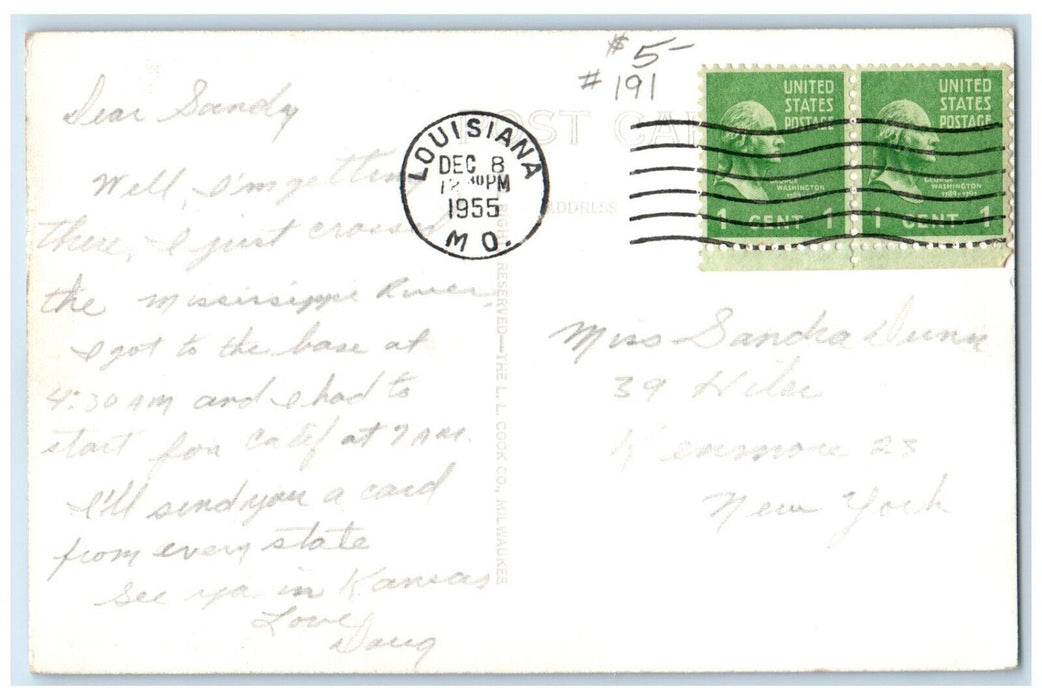 $5-
#191
POST CARD
ADDRESS
LOUISIANA
DEC 8
12 30PM
1955
MO.
UNITED
STATES
POSTAGE
GEORGE
WASHINGTON
1 CENT 1
UNITED
STATES
POSTAGE
GEORGE
WASHINGTON
1789-1797
1 CENT 1
Dear Sandy
Well, I'm getting
there, I just crossed
the Mississippi River,
I got to the base at
4:30 AM and I had to
start for Calif at 7 AM.
I'll send you a card
from every state
See ya in Kansas
Love
Doug
RESERVED—THE L. L. COOK CO., MILWAUKEE
Miss Sandra Dunn
39 Wiler
Kenmore 23
New York